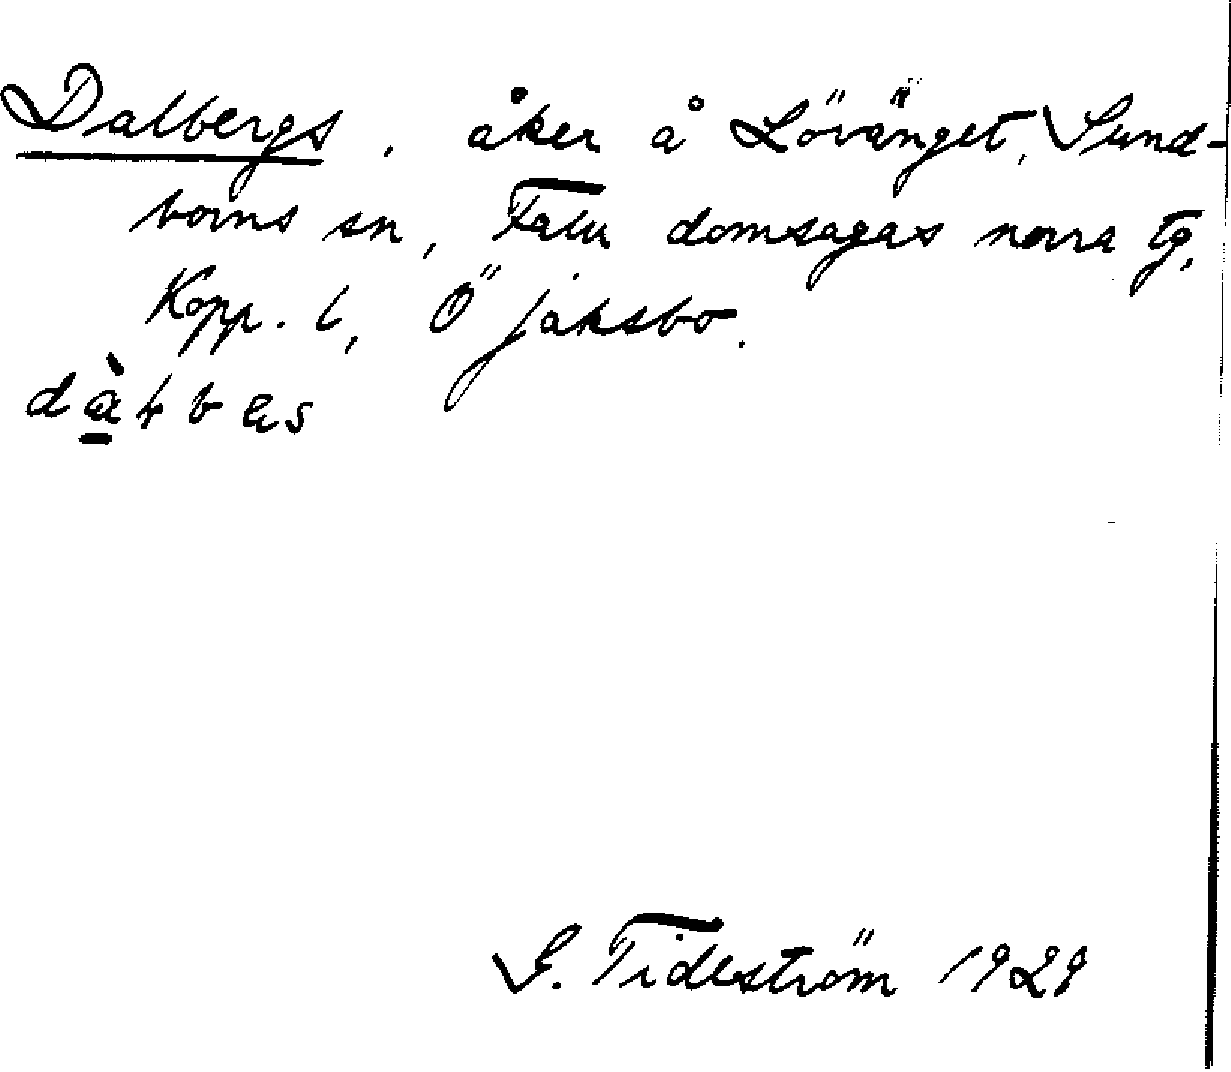 Dalbergs, åker å Lövänget, Sund-
borns sn, Falu domsagas norra tg,
Kopp. l, Ö jaksbo.
dàłbæs
G. Tideström 1929